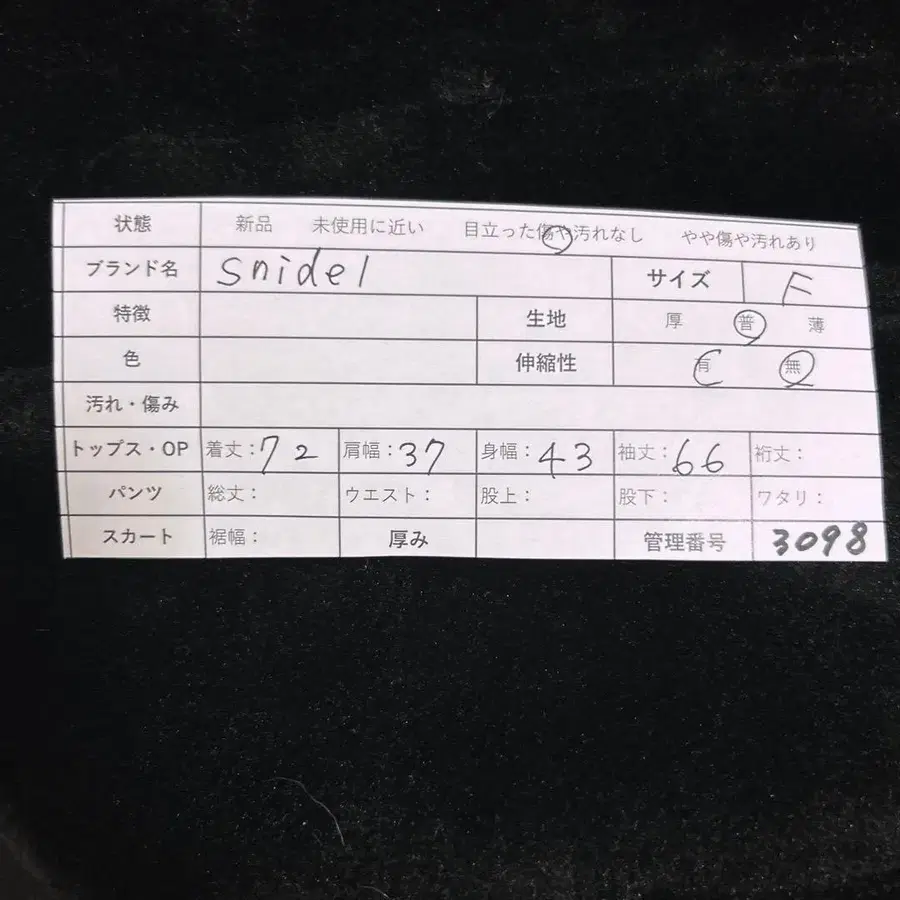 状態 新品 未使用に近い 目立った傷や汚れなし やや傷や汚れあり
ブランド名 snidel サイズ F
特徴 生地 厚 普 薄
色 伸縮性 有 無
汚れ・傷み
トップス・OP 着丈：72 肩幅：37 身幅：43 袖丈：66 裄丈：
パンツ 総丈： ウエスト： 股上： 股下： ワタリ：
スカート 裾幅： 厚み 管理番号 3098